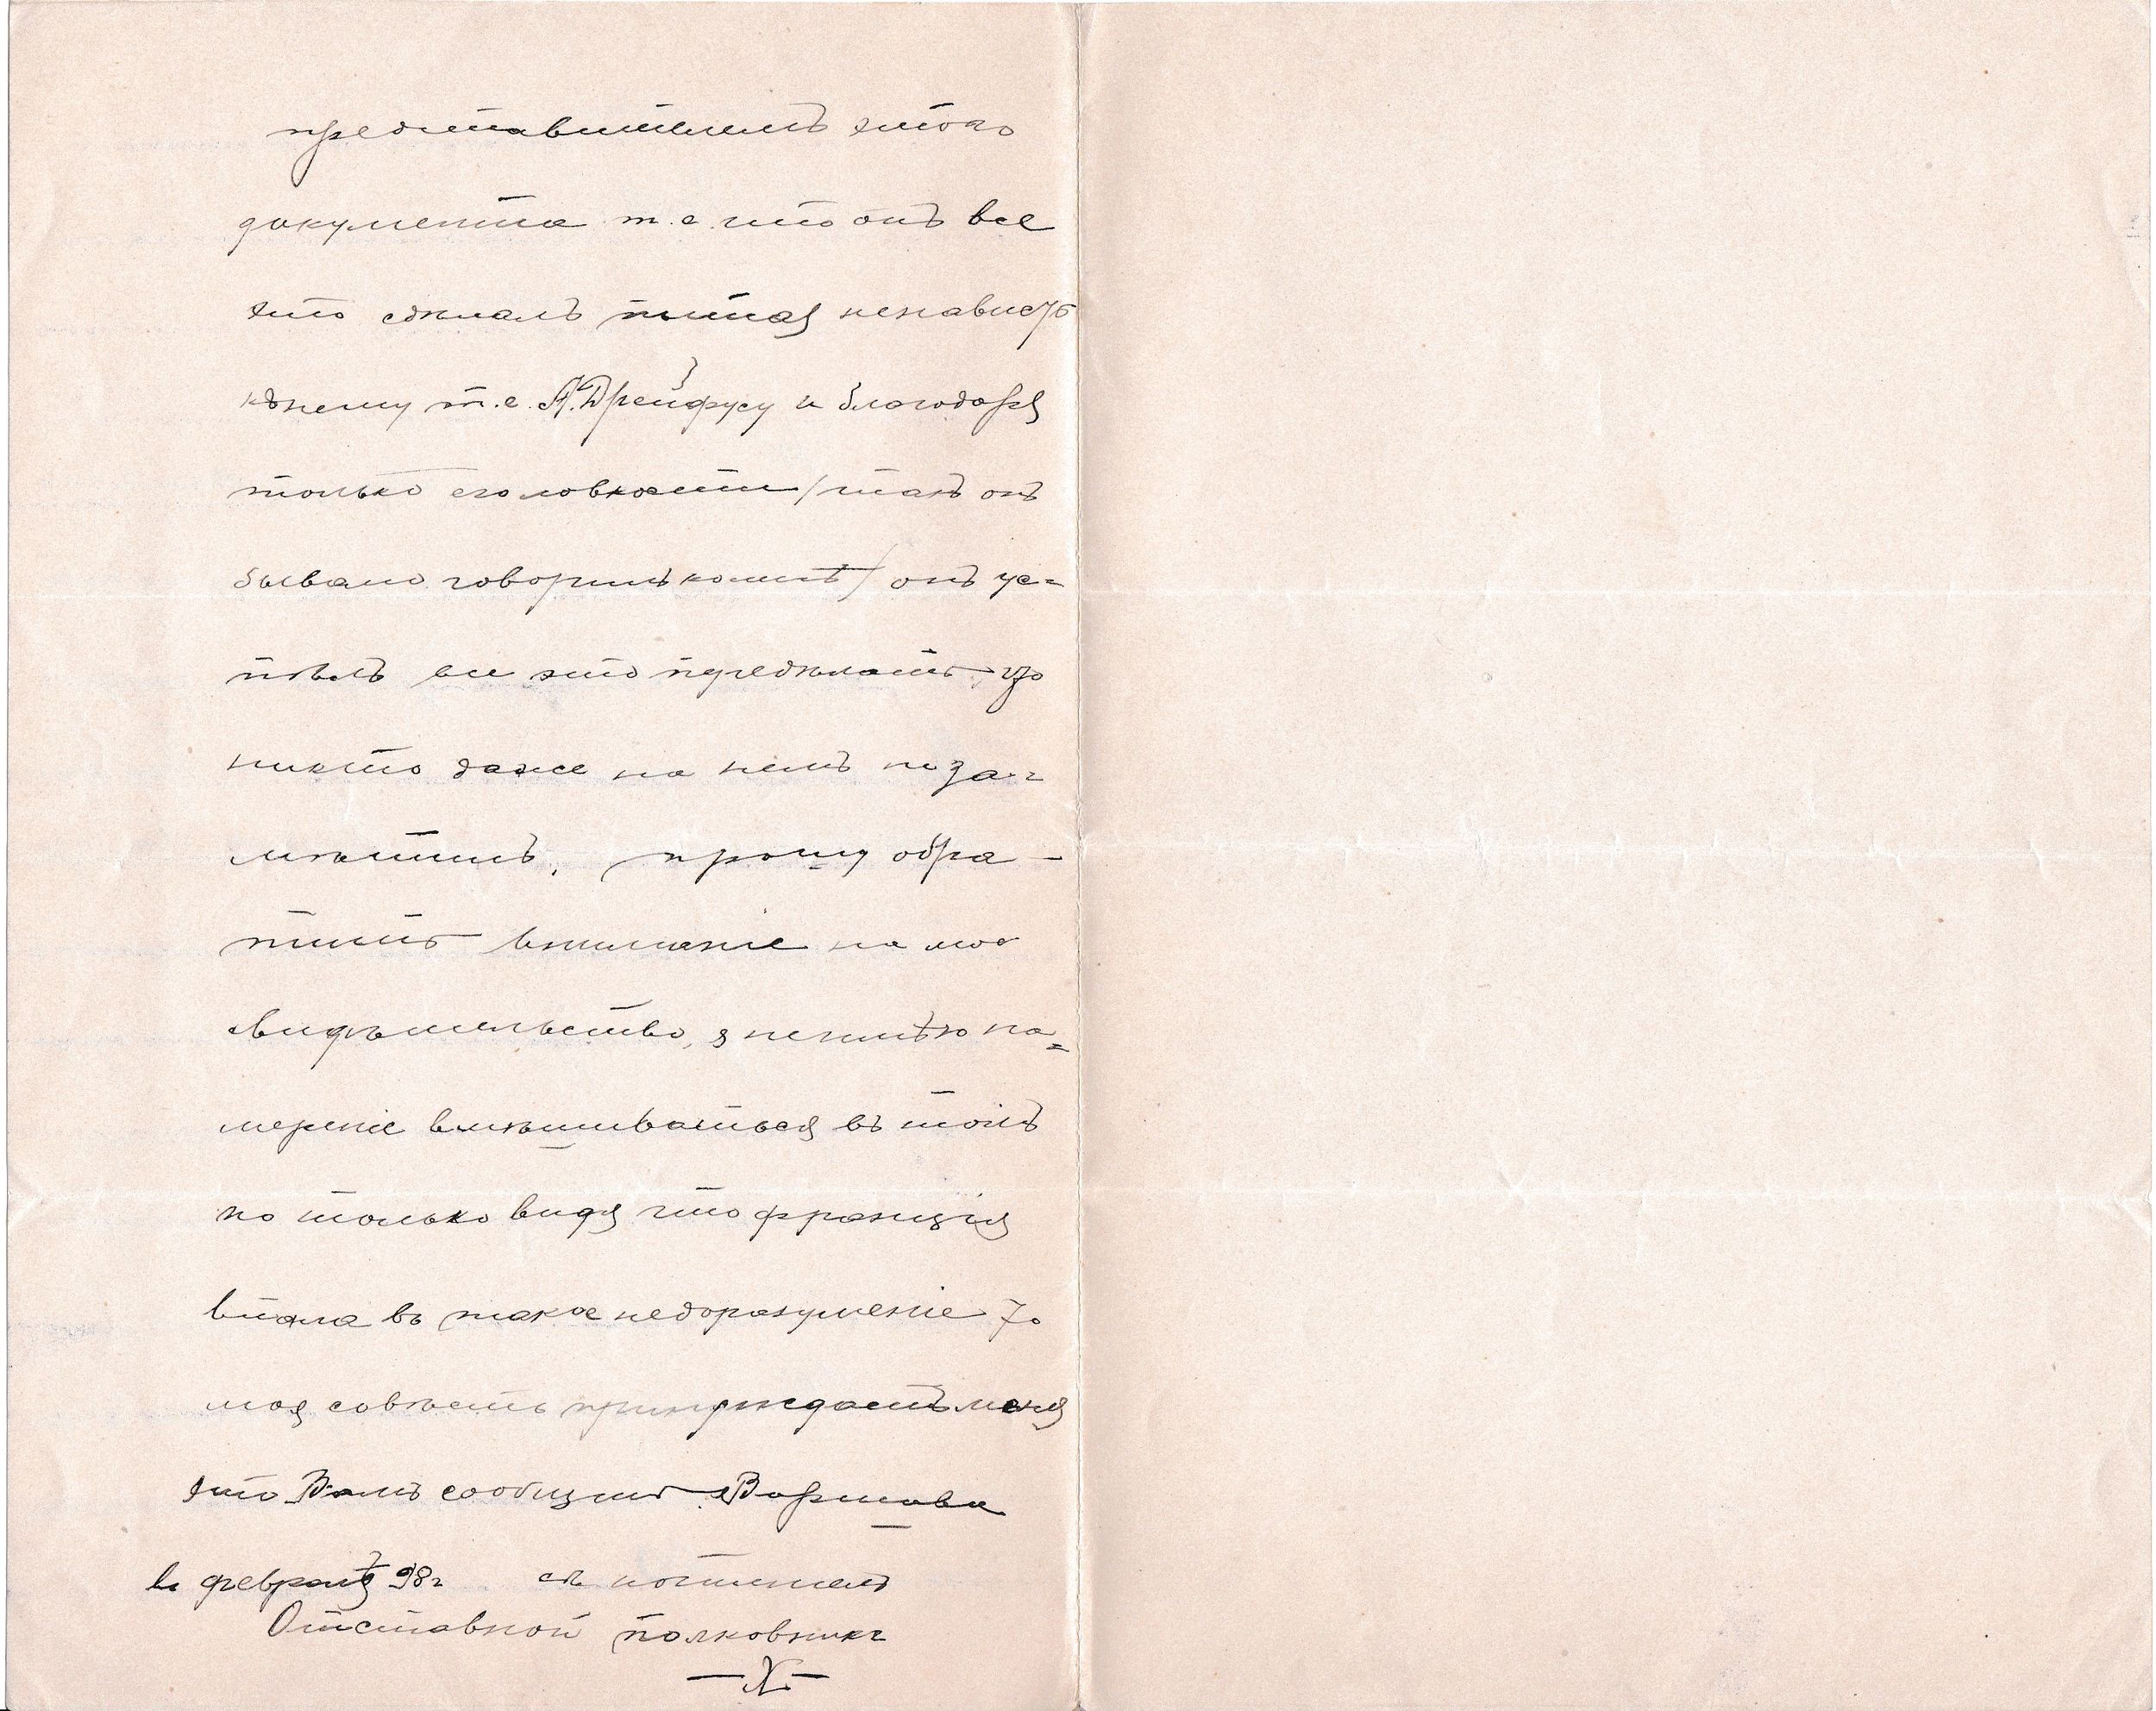 представителемъ этого
документа т.е. что онъ все
это сдѣлалъ питая ненависть
къ нему т.е. А. Дрейфусу и благодаря
только его ловкости / такъ онъ
бывало говорилъ / онъ ус=
пѣлъ все это передѣлать, что
никто даже на немъ не за=
мѣтилъ, прошу обра-
тить вниманіе на мое
свидѣтельство, я не имѣю на=
мереніе вмѣшиваться въ томъ
но только видя что франція
впала въ такое недоразуменіе то
моя совѣсть принуждаетъ меня
это Вамъ сообщить. Варшава
въ февралѣ 98г съ почтеніемъ
Отставной полковникъ
—X—